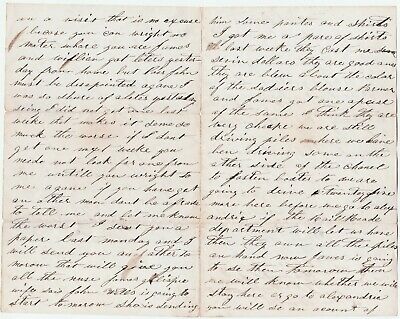 on a visit that is no excuse
because you can wright no
mater where you are James
and william got leters yester
day from home but Poor John
must be disapointed again i
was so shure of a leter yesterday
seing i did not get one last
weeke that makes it seme so
much the worse if i dont
get one nxt weeke you
neede not look for one from
me untill you wright to
me agane if you have got
an other man dont be afrade
to tell me and let me know
the worst I sent you a
paper last monday and i
will send you an other to
morow that will give you
all the news James
wife said John is going to
start tomorow she is sending
him some pants and shirts
I got me a pare of shirts
last weeke they cost me
seven dollars they are good ones
they are blew about the color
of the soldiers blouse
and James got one a pease
of the same I think they are
very cheape we are still
driving piles where we have
ben driving some on the
other side of the chanel
to fasten boates to we are
going to drive twenty five
more here before we go to alex
andria if the Rail Roade
department will let us have
them the own all the piles
on hand now James is going
to see them tomorow then he
will know whether we will
stay here or go to alexandria
you will se an acount of